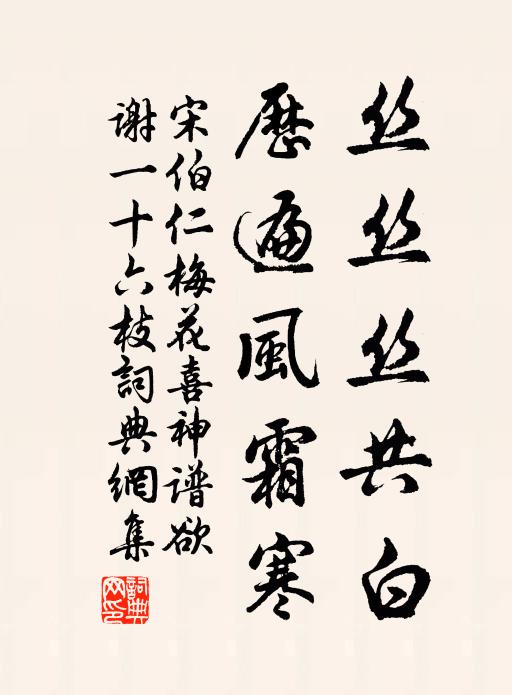 丝丝丝共白
歷遍風霜寒
宋伯仁梅花喜神谱欲
谢一十六枝詞典網集
詞典网印